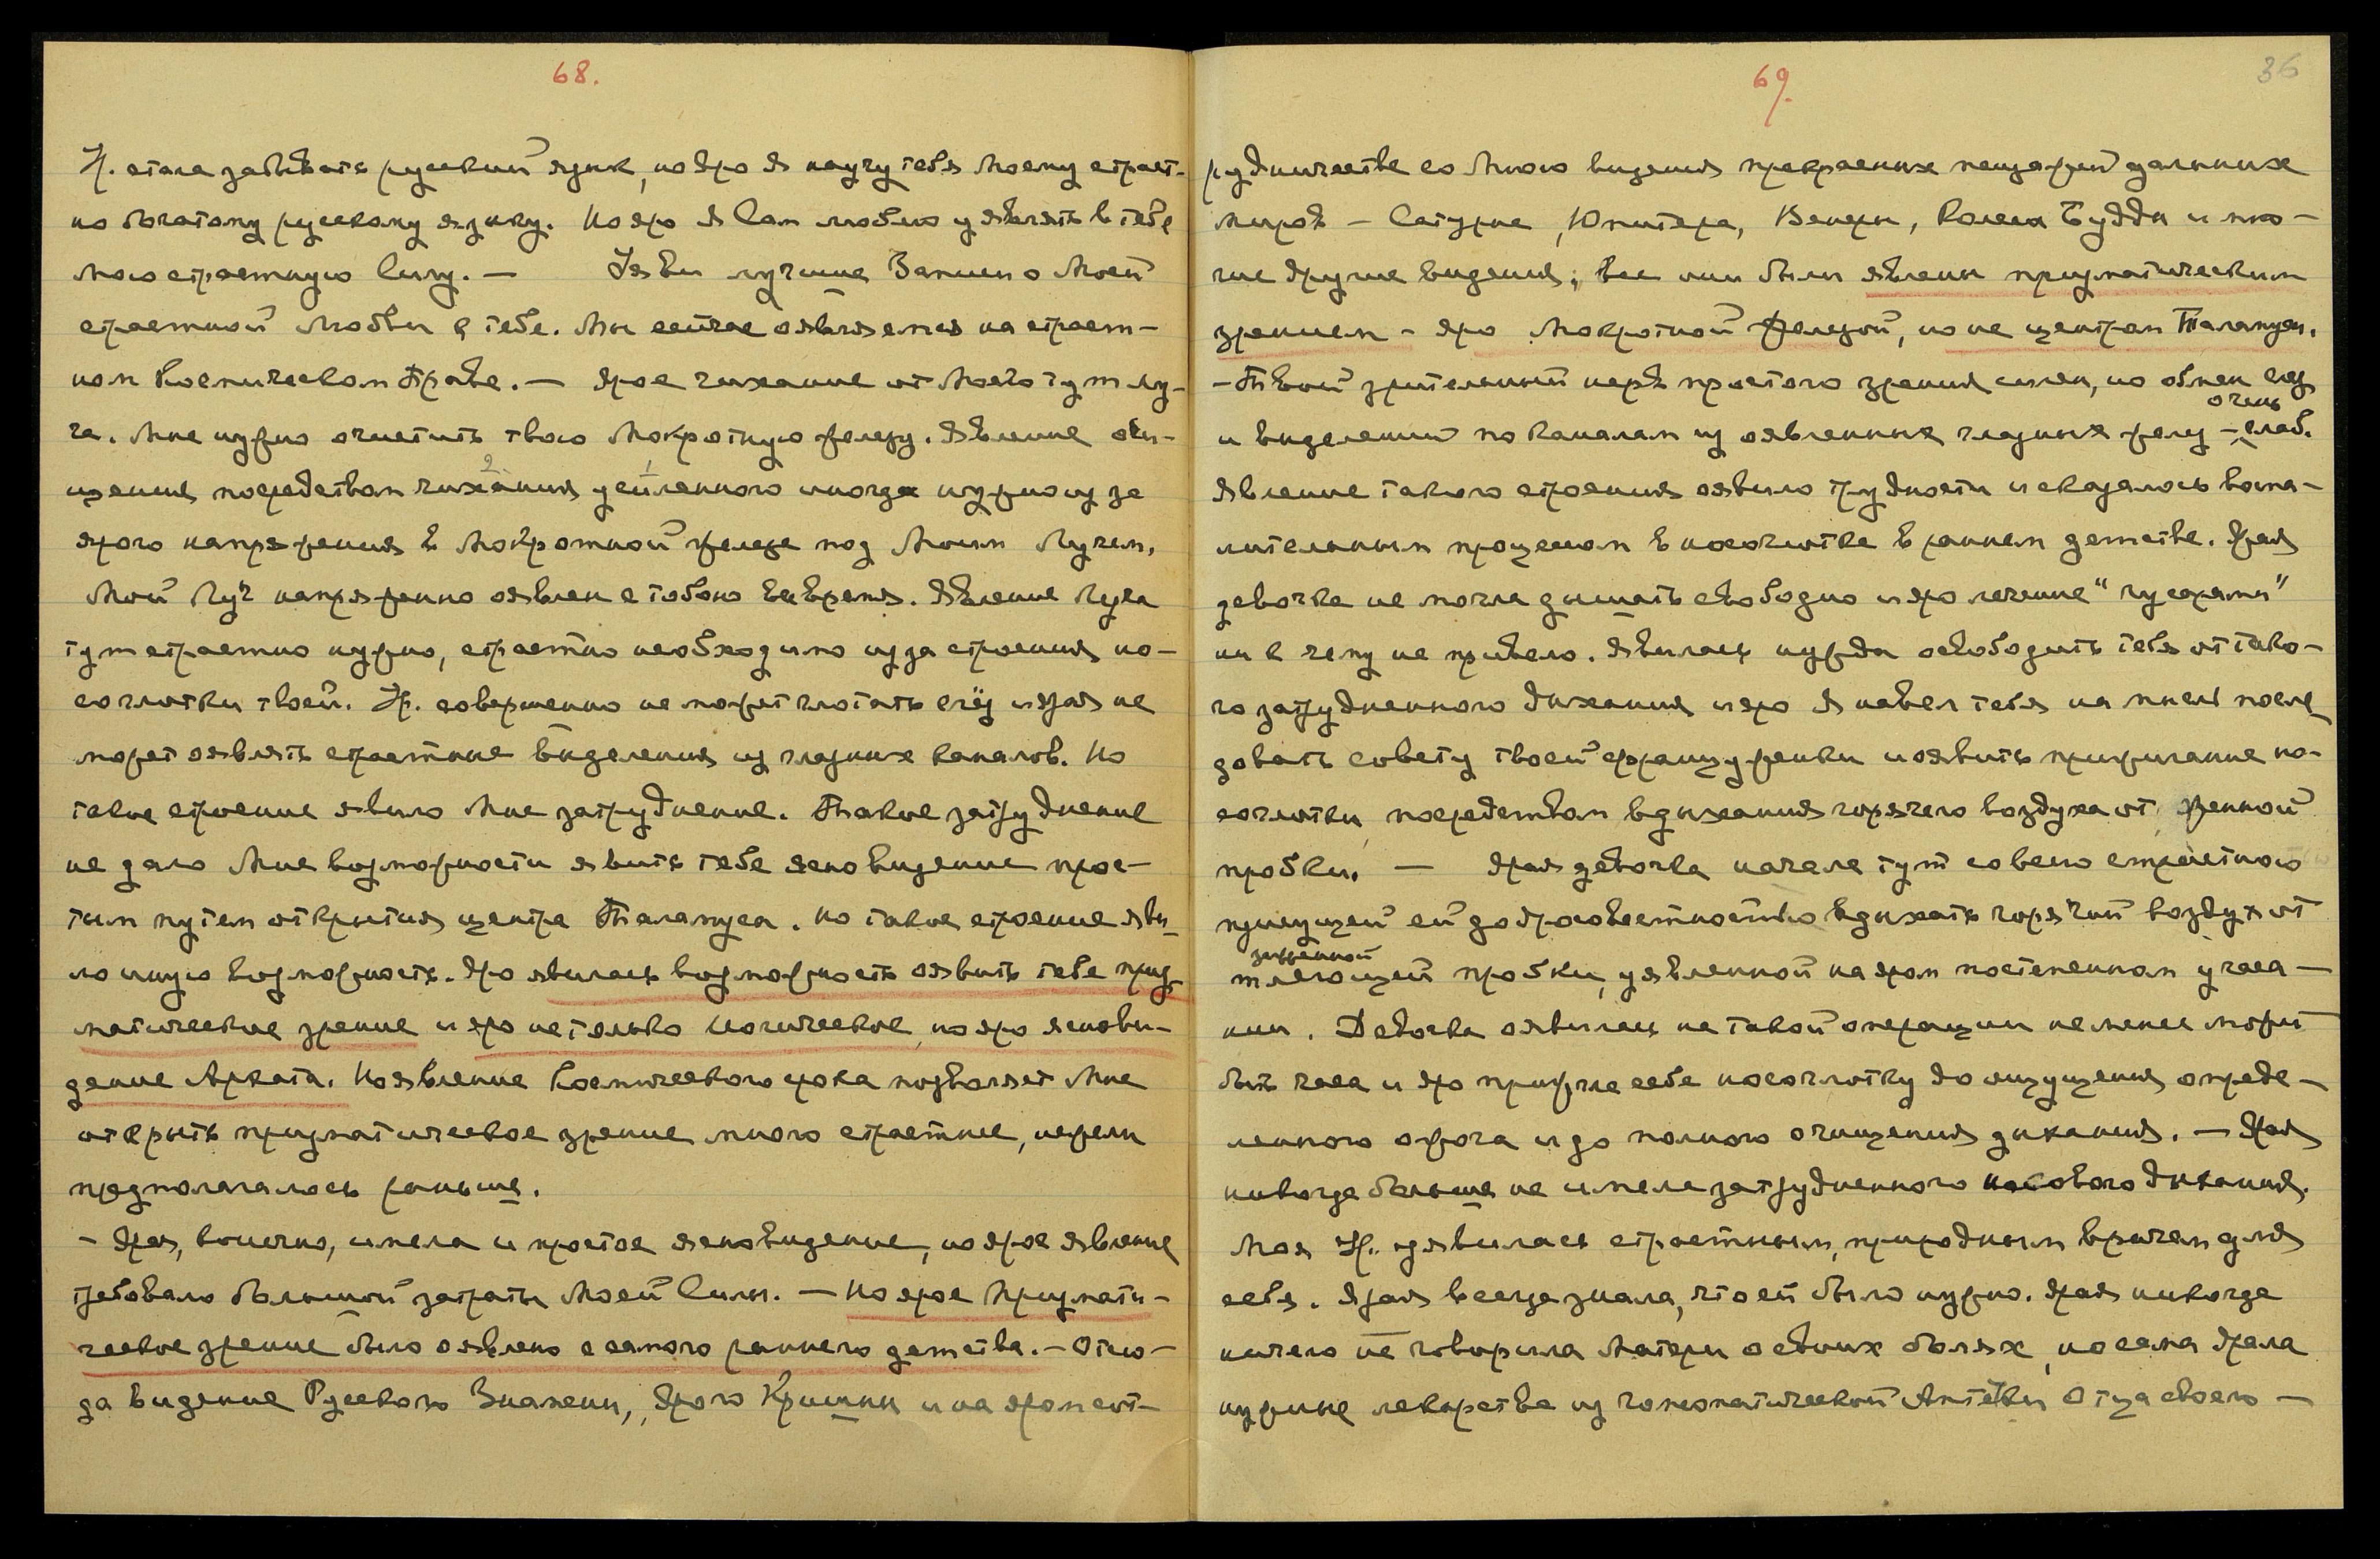 68.
Н. стала забывать русский язык, но яро Я научу тебя Моему страст-
но богатому русскому языку. Но яро Я Сам люблю уявлять в тебе
мою страстную Силу. — Уяви лучше Записи о Моей
страстной Любви к тебе. Мы сейчас оявляемся на страст-
ном Космическом Праве. — Ярое чихание от Моего тут лу-
ча. Мне нужно очистить твою Мокротную железу. Явление очи-
щения посредством чихания усиленного иногда нужно из за
2 1
ярого напряжения в Мокротной железе под Моим Лучем.
Мой Луч напряженно оявлен с тобою все время. Явление Луча
тут страстно нужно, страстно необходимо из за строения но-
соглотки твоей. Н. совершенно не может глотать слёз и ярая не
может оявлять страстные выделения из глазных каналов. Но
такое строение явило Мне затруднение. Такое затруднение
не дало Мне возможности явить тебе ясновидение прос-
тым путем открытия центра Таламуса. Но такое строение яви-
ло иную возможность. Яро явилась возможность оявить тебе приз-
матическое зрение и яро не только Иогическое, но яро яснови-
дение Архата. Но явление Космического срока позволяет Мне
открыть призматическое зрение много страстнее, нежели
предполагалось раньше.
- Ярая, конечно, имела и простое ясновидение, но ярое явление
требовало большой затраты Моей Силы. — Но ярое Призмати-
ческое зрение было оявлено с самого раннего детства. — Отсю-
да видение Русского Знамени, Ярого Кришны и на яром сот-
69.
36
рудничестве со Мною видения прекрасных пейзажей дальних
миров — Сатурна, Юпитера, Венеры, Колеса Будды и мно-
гие другие видения; все они были явлены призматическим
зрением - яро Мокротной железой, но не центром Таламуса.
- Твой зрительный нерв простого зрения силен, но обмен слез
и выделений по каналам из оявленных глазных желез — очень слаб.
Явление такого строения оявило трудности и сказалось воспа-
лительным процессом в носоглотке в раннем детстве. Ярая
девочка не могла дышать свободно и яро лечение "гусарами"
ни к чему не привело. Явилась нужда освободить тебя от тако-
го затрудненного дыхания и яро Я навел тебя на мысль после-
довать совету твоей француженки и оявить прижигание но-
соглотки посредством вдыхания горячего воздуха от жженной
пробки. — Ярая девочка начала тут со всею страстною
присущей ей добросовестностью вдыхать горячий воздух от
зажженной
тлеющей пробки, уявленной на яром постепенном угаса-
нии. Девочка оявилась на такой операции не менее может
быть часа и яро прижгла себе носоглотку до ощущения опреде-
ленного ожога и до полного очищения дыхания. — Ярая
никогда больше не имела затрудненного носового дыхания.
Моя Н. уявилась страстным, природным врачем для
себя. Ярая всегда знала, что ей было нужно. Ярая никогда
ничего не говорила Матери о своих болях, но сама брала
нужные лекарства из гомеопатической Аптечки Отца своего —